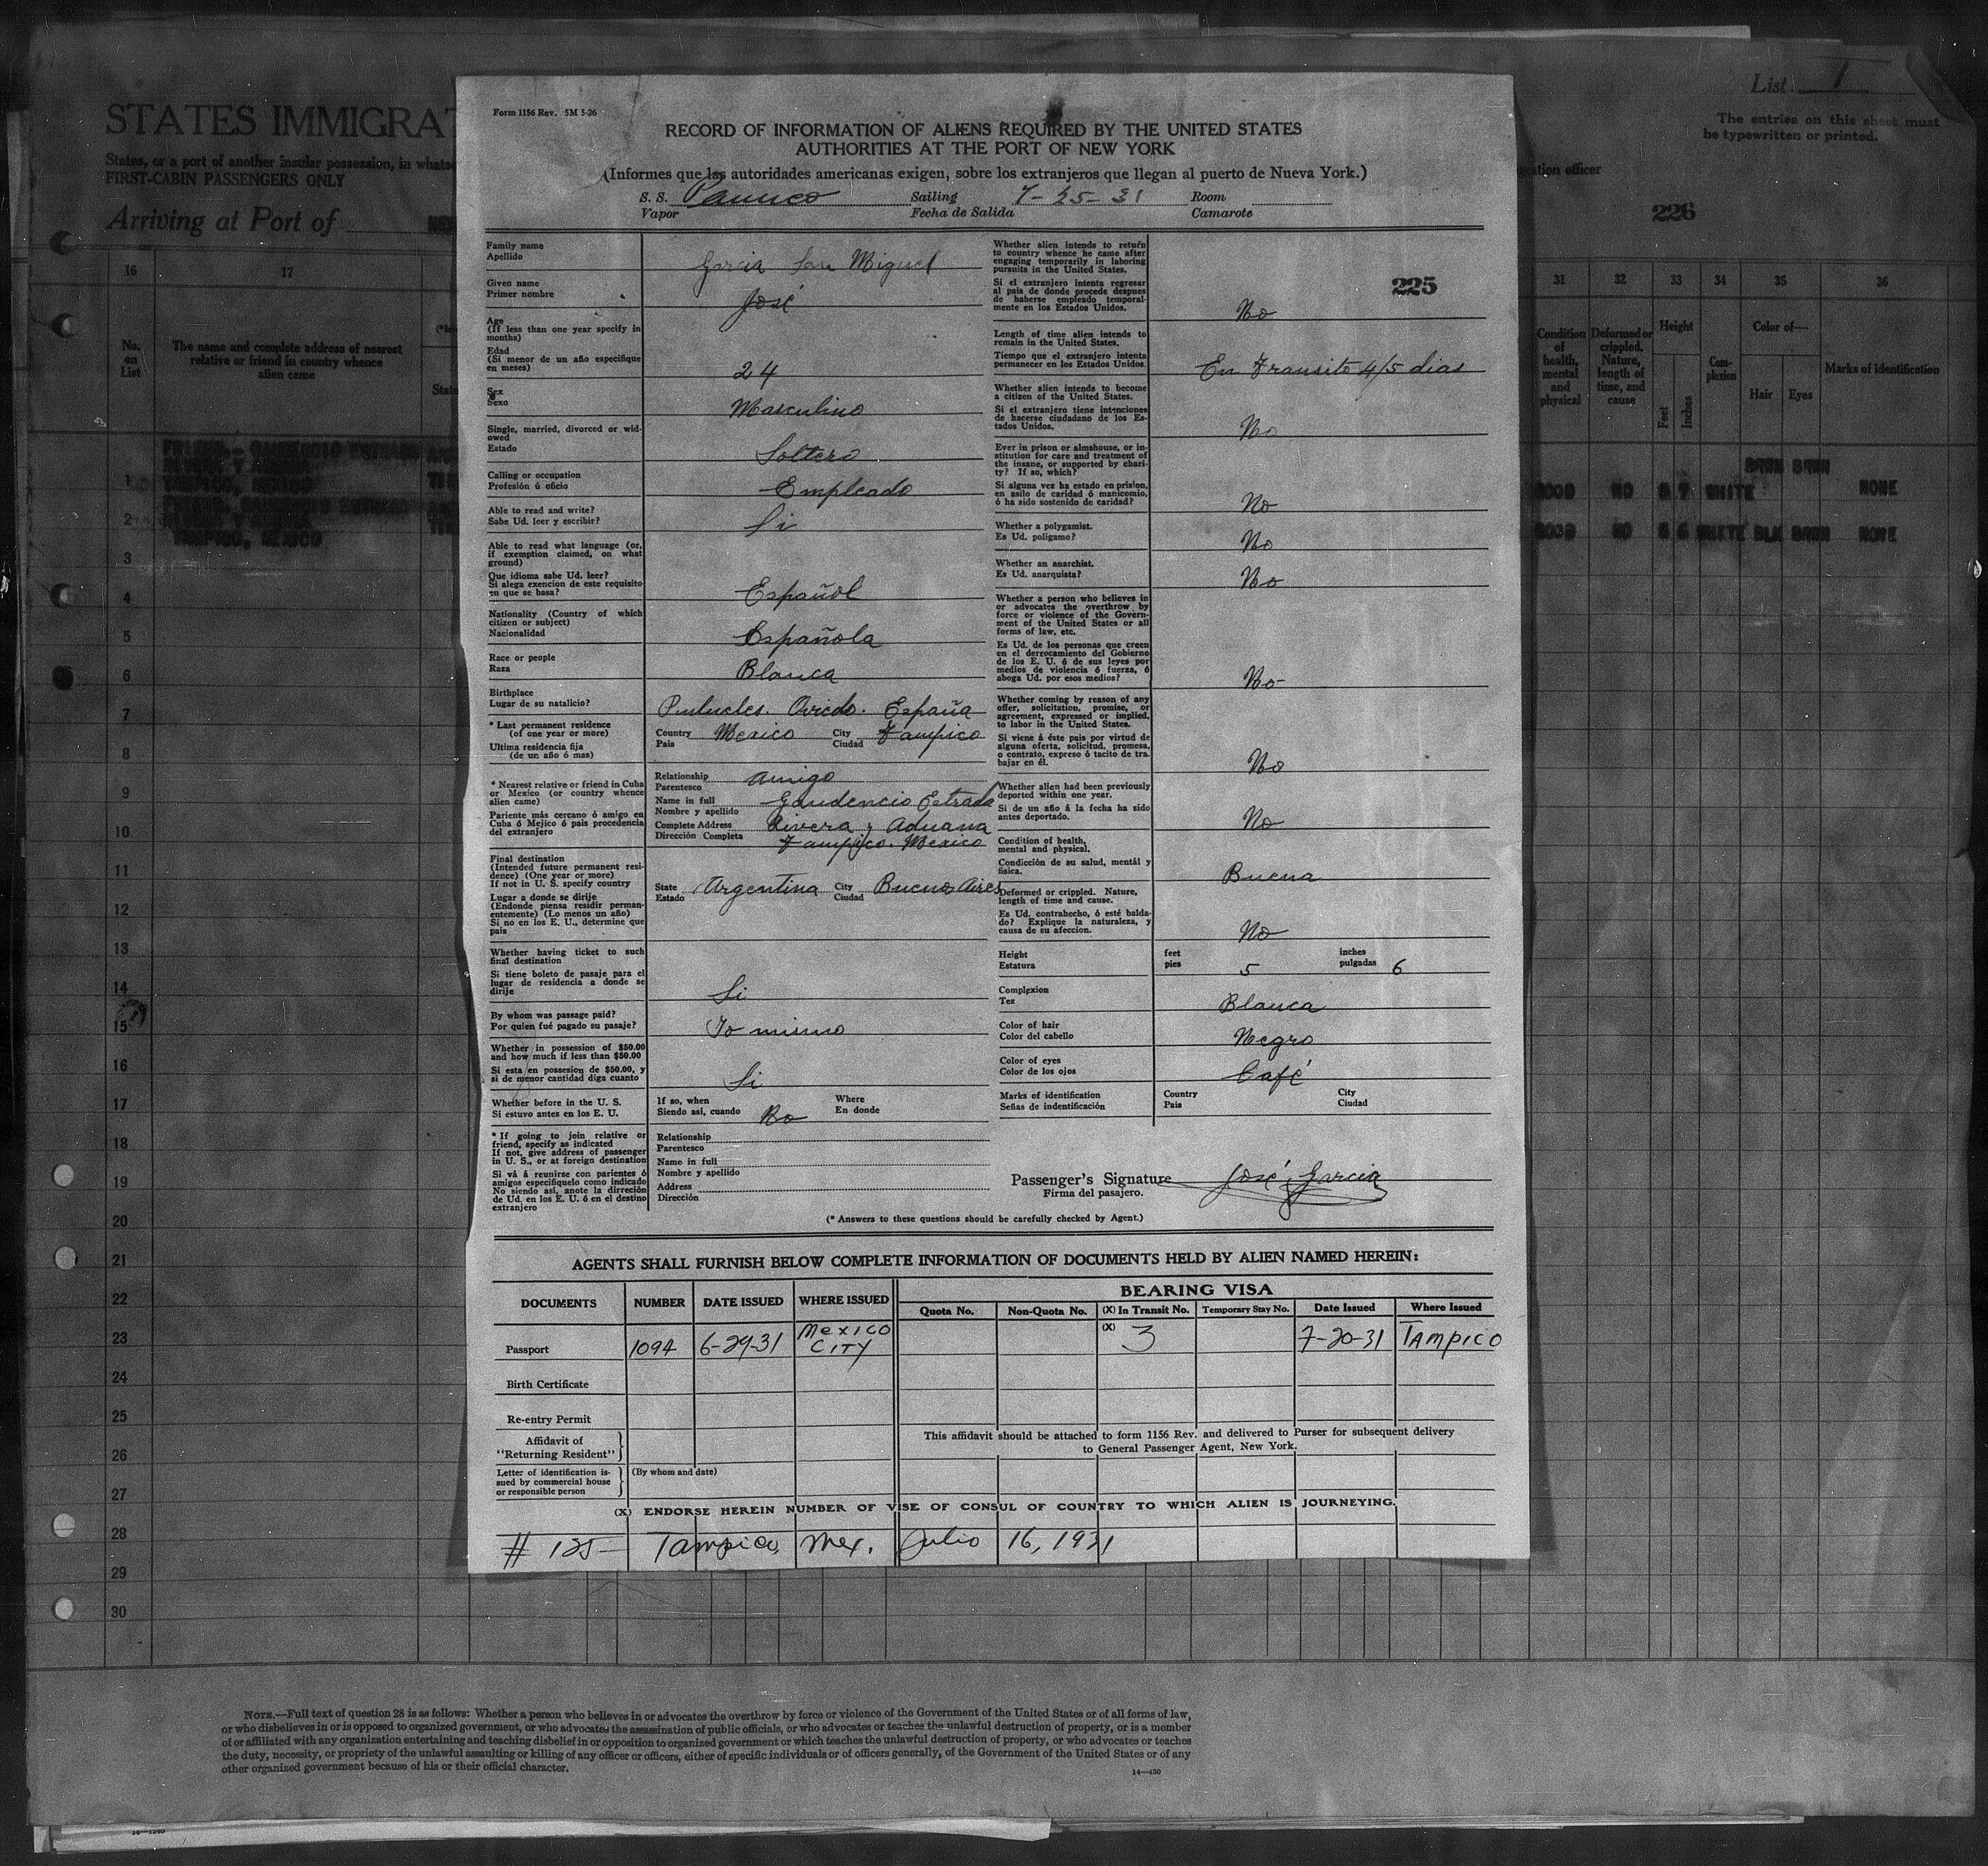 STATES IMMIGRAT
States, or a port of another insular possession, in whatso
FIRST-CABIN PASSENGERS ONLY
Arriving at Port of
List 1
The entries on this sheet must
be typewritten or printed.
officer
226
16
17
No.
on
List
The name and complete address of nearest
relative or friend in country whence
alien came
State
31
32
33
34
35
36
Condition
of
health,
mental
and
physical
Deformed or
crippled.
Nature,
length of
time, and
cause
Height
Feet
Inches
Com-
plexion
Color of—
Hair
Eyes
Marks of identification
BRWN BRWN
GOOD NO 5 7 WHITE NONE
GOOD NO 5 6 WHITE BLK BRWN NONE
TAMPICO, MEXICO
TAMPICO, MEXICO
1
2
3
4
5
6
7
8
9
10
11
12
13
14
15
16
17
18
19
20
21
22
23
24
25
26
27
28
29
30
Form 1156 Rev. 5M 5-26
RECORD OF INFORMATION OF ALIENS REQUIRED BY THE UNITED STATES
AUTHORITIES AT THE PORT OF NEW YORK
(Informes que las autoridades americanas exigen, sobre los extranjeros que llegan al puerto de Nueva York.)
S. S. Panuco Sailing 7-25-31 Room
Vapor Fecha de Salida Camarote
225
Family name
Apellido
Garcia San Miguel
Given name
Primer nombre
José
Age
(If less than one year specify in
months)
Edad
(Si menor de un año especifique
en meses)
24
Sex
Sexo
Masculino
Single, married, divorced or wid-
owed
Estado
Soltero
Calling or occupation
Profesión ú oficio
Empleado
Able to read and write?
Sabe Ud. leer y escribir?
Si
Able to read what language (or,
if exemption claimed, on what
ground)
Que idioma sabe Ud. leer?
Si alega exencion de este requisito
en que se basa?
Español
Nationality (Country of which
citizen or subject)
Nacionalidad
Española
Race or people
Raza
Blanca
Birthplace
Lugar de su natalicio?
Oviedo. España
* Last permanent residence
(of one year or more)
Ultima residencia fija
(de un año ó mas)
Country Mexico City Tampico
Pais Ciudad
* Nearest relative or friend in Cuba
or Mexico (or country whence
alien came)
Pariente más cercano ó amigo en
Cuba ó Mejico ó pais procedencia
del extranjero
Relationship amigo
Parentesco
Name in full Gaudencio Estrada
Nombre y apellido
Complete Address Rivera y Aduana
Dirección Completa Tampico. Mexico
Final destination
(Intended future permanent resi-
dence) (One year or more)
If not in U. S. specify country
Lugar a donde se dirije
(Endonde piensa residir perman-
entemente) (Lo menos un año)
Si no en los E. U., determine que
pais
State Argentina City Buenos Aires
Estado Ciudad
Whether having ticket to such
final destination
Si tiene boleto de pasaje para el
lugar de residencia a donde se
dirije
Si
By whom was passage paid?
Por quien fué pagado su pasaje?
Yo mismo
Whether in possession of $50.00
and how much if less than $50.00
Si esta en possesion de $50.00, y
si de menor cantidad diga cuanto
Si
Whether before in the U. S.
Si estuvo antes en los E. U.
If so, when Where
Siendo asi, cuando No En donde
* If going to join relative or
friend, specify as indicated
If not, give address of passenger
in U. S., or at foreign destination
Si vá á reunirse con parientes ó
amigos especifiquelo como indicado
No siendo asi, anote la dirreción
de Ud. en los E. U. ó en el destino
extranjero
Relationship
Parentesco
Name in full
Nombre y apellido
Address
Dirección
Whether alien intends to return
to country whence he came after
engaging temporarily in laboring
pursuits in the United States.
Si el extranjero intenta regresar
al pais de donde procede despues
de haberse empleado temporal-
mente en los Estados Unidos.
No
Length of time alien intends to
remain in the United States.
Tiempo que el extranjero intenta
permanecer en los Estados Unidos.
En Transito 4/5 dias
Whether alien intends to become
a citizen of the United States.
Si el extranjero tiene intenciones
de hacerse ciudadano de los Es-
tados Unidos.
No
Ever in prison or almshouse, or in-
stitution for care and treatment of
the insane, or supported by chari-
ty? If so, which?
Si alguna vez ha estado en prision,
en asilo de caridad ó manicomio,
ó ha sido sostenido de caridad?
No
Whether a polygamist.
Es Ud. poligamo?
No
Whether an anarchist.
Es Ud. anarquista?
No
Whether a person who believes in
or advocates the overthrow by
force or violence of the Govern-
ment of the United States or all
forms of law, etc.
Es Ud. de los personas que creen
en el derrocamiento del Gobierno
de los E. U. ó de sus leyes por
medios de violencia ó fuerza, ó
aboga Ud. por esos medios?
No
Whether coming by reason of any
offer, solicitation, promise, or
agreement, expressed or implied,
to labor in the United States.
Si viene á éste pais por virtud de
alguna oferta, solicitud, promesa,
o contrato, expreso ó tacito de tra-
bajar en él.
No
Whether alien had been previously
deported within one year.
Si de un año á la fecha ha sido
antes deportado.
No
Condition of health,
mental and physical.
Condicción de su salud, mentál y
fisica.
Buena
Deformed or crippled. Nature,
length of time and cause.
Es Ud. contrahecho, ó esté balda-
do? Explique la naturaleza, y
causa de su afeccion.
No
Height feet inches
Estatura pies 5 pulgadas 6
Complexion
Tez
Blanca
Color of hair
Color del cabello
Negro
Color of eyes
Color de los ojos
Café
Marks of identification Country City
Señas de indentificación Pais Ciudad
Passenger's Signature José Garcia
Firma del pasajero.
(* Answers to these questions should be carefully checked by Agent.)
AGENTS SHALL FURNISH BELOW COMPLETE INFORMATION OF DOCUMENTS HELD BY ALIEN NAMED HEREIN:
DOCUMENTS NUMBER DATE ISSUED WHERE ISSUED BEARING VISA
Quota No. Non-Quota No. (X) In Transit No. Temporary Stay No. Date Issued Where Issued
Passport 1094 6-29-31 MEXICO CITY (X) 3 7-20-31 TAMPICO
Birth Certificate
Re-entry Permit
Affidavit of
"Returning Resident"
This affidavit should be attached to form 1156 Rev. and delivered to Purser for subsequent delivery
to General Passenger Agent, New York.
Letter of identification is-
sued by commercial house
or responsible person
(By whom and date)
(X) ENDORSE HEREIN NUMBER OF VISE OF CONSUL OF COUNTRY TO WHICH ALIEN IS JOURNEYING.
# 125- Tampico, Mex. Julio 16, 1931
NOTE.—Full text of question 28 is as follows: Whether a person who believes in or advocates the overthrow by force or violence of the Government of the United States or of all forms of law,
or who disbelieves in or is opposed to organized government, or who advocates the assassination of public officials, or who advocates or teaches the unlawful destruction of property, or is a member
of or affiliated with any organization entertaining and teaching disbelief in or opposition to organized government or which teaches the unlawful destruction of property, or who advocates or teaches
the duty, necessity, or propriety of the unlawful assaulting or killing of any officer or officers, either of specific individuals or of officers generally, of the Government of the United States or of any
other organized government because of his or their official character.
14—430
14—1240